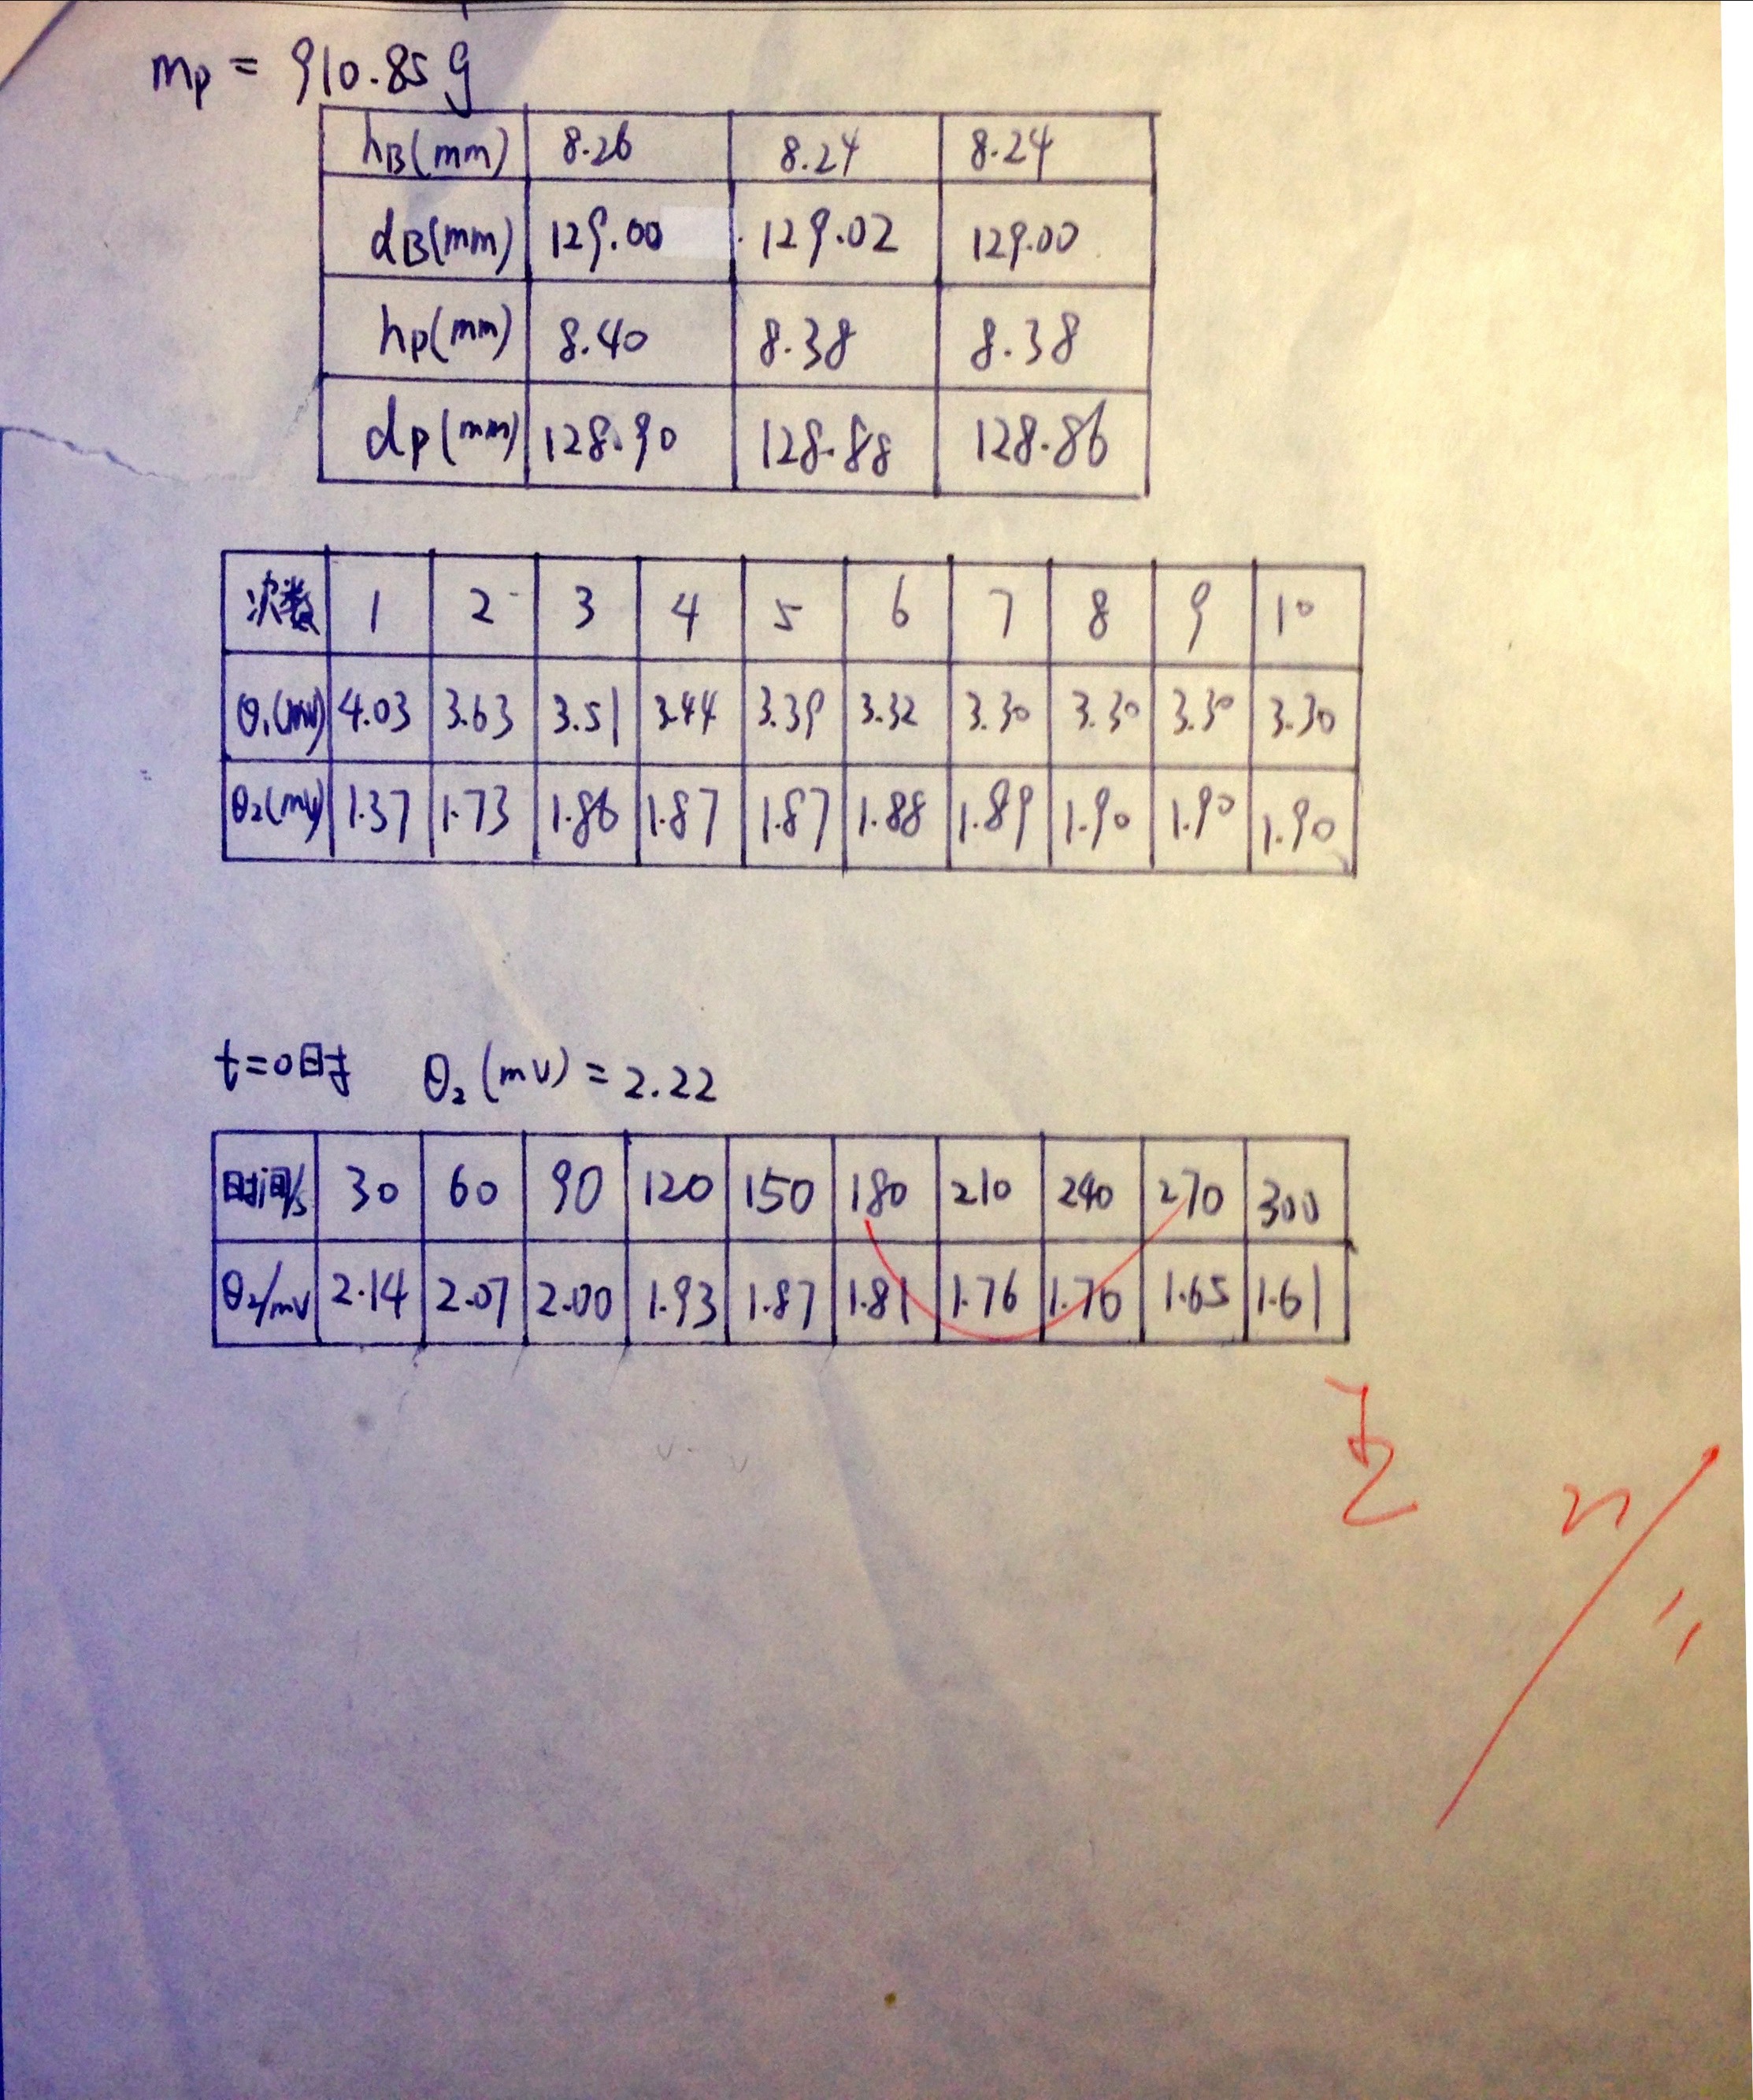 mp = 910.85 g
hB(mm) 8.26 8.24 8.24
dB(mm) 129.00 129.02 129.00
hp(mm) 8.40 8.38 8.38
dp(mm) 128.90 128.88 128.86
次数 1 2 3 4 5 6 7 8 9 10
θ1(mV) 4.03 3.63 3.51 3.44 3.39 3.32 3.30 3.30 3.30 3.30
θ2(mV) 1.37 1.73 1.86 1.87 1.87 1.88 1.89 1.90 1.90 1.90
t=0时 θ2(mV)=2.22
时间/s 30 60 90 120 150 180 210 240 270 300
θ2/mV 2.14 2.07 2.00 1.93 1.87 1.81 1.76 1.70 1.65 1.61